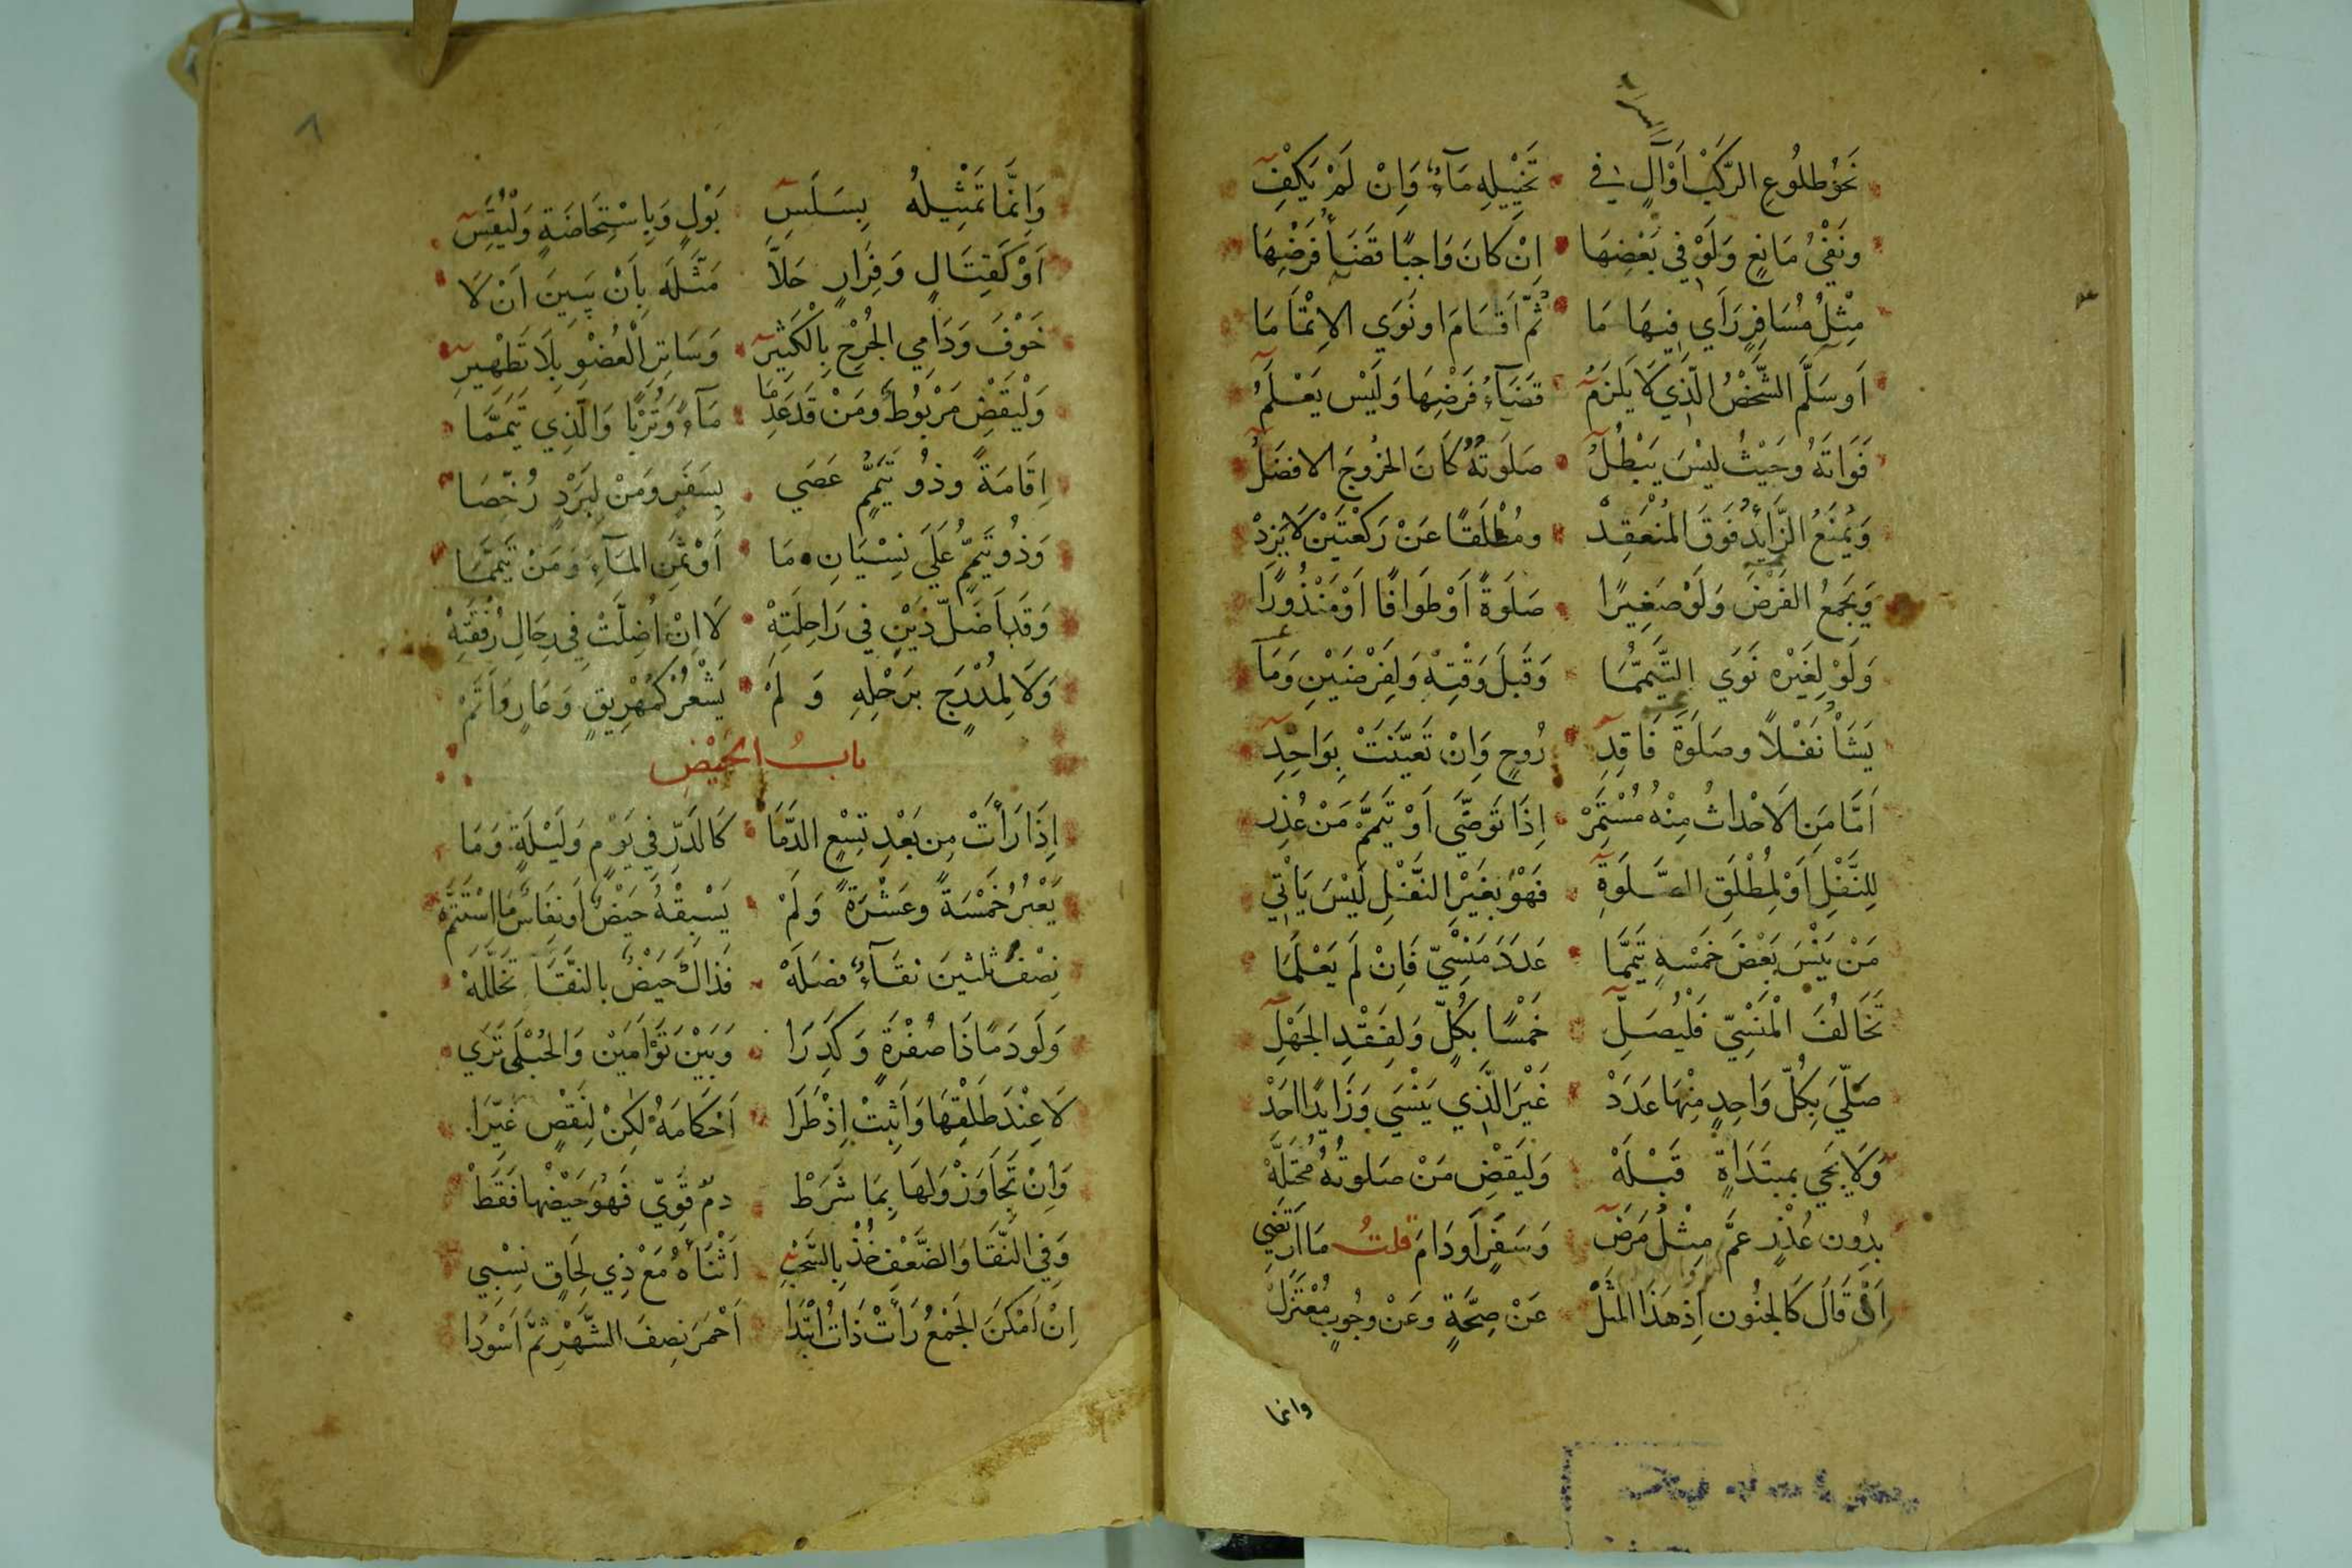 نَحْوُ طلُوعِ الرَّكْبِ أَوْ آلٍ فِي تَخْيِيلِهِ مَآءً وَاِنْ لَمْ يَكْفِ
ونَفْيُ مَانِعٍ وَلَوْ فِي بَعْضِهَا اِنْ كَانَ وَاجِبًا قَضَآءُ فَرْضِهَا
مِثْلُ مُسَافِرٍ رَأَي فِيهَا مَا ثُمَّ اَقَامَ او نَوَي الاِتْمَامَا
اَو سَلَّمَ الشَّخْصُ الَّذِي لَا يَلْزَمُ قَضَآءُ فَرْضِهَا وَلَيْس يَعْلَمُ
فَوَاتَهُ وحَيْثُ ليْسَ يَبْطُلُ صَلَوتُهُ كَانَ الخرُوجَ الافضَلُ
وَيُمْنَعُ الزَّايِدُ فَوقَ المُنْعَقِدْ ومُطْلَقًا عَنْ رَكْعَتَيْنِ لَا يَزِدْ
وَيَجْمَعُ الفَرْضَ وَلَوْ صَغِيرًا صَلَوةً اَوْ طَوَافًا اَوْ مَنْذُورًا
وَلَوْ لِغَيْرِهِ نَوَي التَّيَمُّمَا وَقَبلَ وَقْتِهِ وَلِفَرْضَيْنِ وَمَا
يَشَأْ نَفْلاً وصَلَوةَ فَاقِدِ رُوحٍ وَاِنْ تَعَيَّنَتْ بِوَاحِدِ
اَمَّا مَنِ الاَحْداثُ مِنْهُ مُسْتَمِرّْ اِذَا تَوَضَّي اَوْ تَيَمَّمَ مَنْ عُذِر
لِلنَّفْلِ اَوْ لِمُطْلَقِ الصَّلَوةِ فَهْوَ بِغَيْرِ النَّفْلِ لَيْسَ يَاتِي
مَنْ يَنْسَ بَعْضَ خَمْسِهِ تَيَمَّمَا عَدَدَ مَنْسِيٍّ فَاِنْ لَم يَعْلَمَا
تَخَالُفَ الْمَنْسِيّ فَليُصَلِّ خَمْسًا بِكُلٍّ وَلِفَقْدِ الجَهْلِ
صَلَّي بِكُلِّ وَاحِدٍ مِنْهَا عَدَدْ غَيْرَ الَّذِي يَنْسَي وَزَايِدًا اَحَدْ
وَلَا يَجي بمبتَدَاةٍ قَبْلَهْ وَليَقضِ مَنْ صَلوتُهُ مُختَلَّهْ
بِدُونِ عُذْرٍ عمَّ مِثْلُ مَرَضِ وَسَفَرٍ اَو دَامَ قلتُ مَا ارْتَضِي
اَنْ قَالَ كَالجنُونِ اِذ هَذَا المَثَلْ عَنْ صِحَّةٍ وعَنْ وجُوبٍ مُعْتَزَلْ
وانما
وَاِنَّمَا تَمْثِيلُهُ بِسَلَسِ بَوْلٍ وَبِاسْتِحَاضَةٍ وَلْيُقَسِ
اَوْ كَقِتَالٍ وَفِرَارٍ حَلاَّ مَثَّلَه بِاَنْ يَبِينَ اَنْ لَا
خَوْفَ وَدَامِي الجُرْحِ بِالْكَثِيرِ وَسَاتِرِ الْعُضْوِ بِلَا تَطْهِيرِ
وَلْيَقْضِ مَرْبُوطٌ وَمَنْ قَد عَدِمَا مَآءً وَتُرْبًا وَالَّذِي تَيَمَّمَا
اِقَامَةً وذُو تَيَمُّمٍ عَصَي بِسَفَرٍ وَمَنْ لِبَرْدٍ رُخِّصَا
وَذُو تَيَمُّمٍ عَلَي نِسْيَانِ مَا اَوْ ثَمَنِ المَآءِ وَمَنْ تَيَمَّمَا
وَقَد اَضَلَّ ذَيْنِ فِي رَاحِلَتِهْ لَا اِنْ اُضِلَّتْ فِي رِحَالِ رُفْقَتِهْ
وَلَا لِمُدْرَجٍ بِرَحْلِهِ وَ لَمْ يَشْعُرْ كَمُهْرِيقٍ وَعَارٍ وَاَتَمّْ
بابُ الحَيْضِ
اِذَا رَأَتْ مِن بَعْدِ تِسْعٍ الدَّمَا كَالدَرِّ فِي يَوْمٍ وَلَيْلَةٍ وَمَا
يَعْبُرُ خَمْسَةً وعَشْرَةً وَلَمْ يَسْبِقْهُ حَيْضٌ اَو نِفَاسٌ مَا اسْتَتَمّْ
نِصْفُ ثلثِينَ نقَآءٌ فصَلَهْ فَذَاكَ حَيْضٌ بالنَّقَا تَخَلَّلَهْ
وَلَو دَمًا ذَا صُفْرَةٍ وَكَدِرَا وَبَيْنَ تَوْأَمَيْنِ وَالحُبْلَى تَرَي
لَا عِنْدَ طَلْقِهَا وَاَثْبِتْ اِذْ طَرَا اَحْكَامَهُ لٰكِنْ لِنَقْصٍ غَيَّرَا
وَاِنْ تَجَاوَزْ وَلَهَا بِمَا شَرَطْ دمٌ قَوِيّ فَهُوَ حَيْضُها فَقَطْ
وَفِي النَّقَا وَالضَّعْفِ خُذْ بِالسَّحْبِ اَثْنَاهُ مَعْ ذِي لِحَاقٍ نِسْبِي
اِنْ اَمْكَنَ الجَمْعُ رَأَتْ ذَاتُ ابْتِدَا اَحْمَرَ نِصفَ الشَّهْرِ ثمَّ اَسْوَدَا